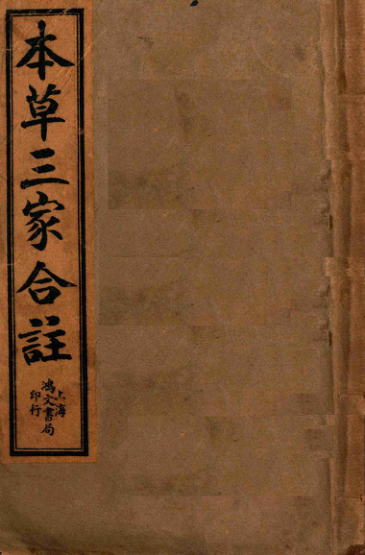 本草三家合註
上海
鴻文書局
印行